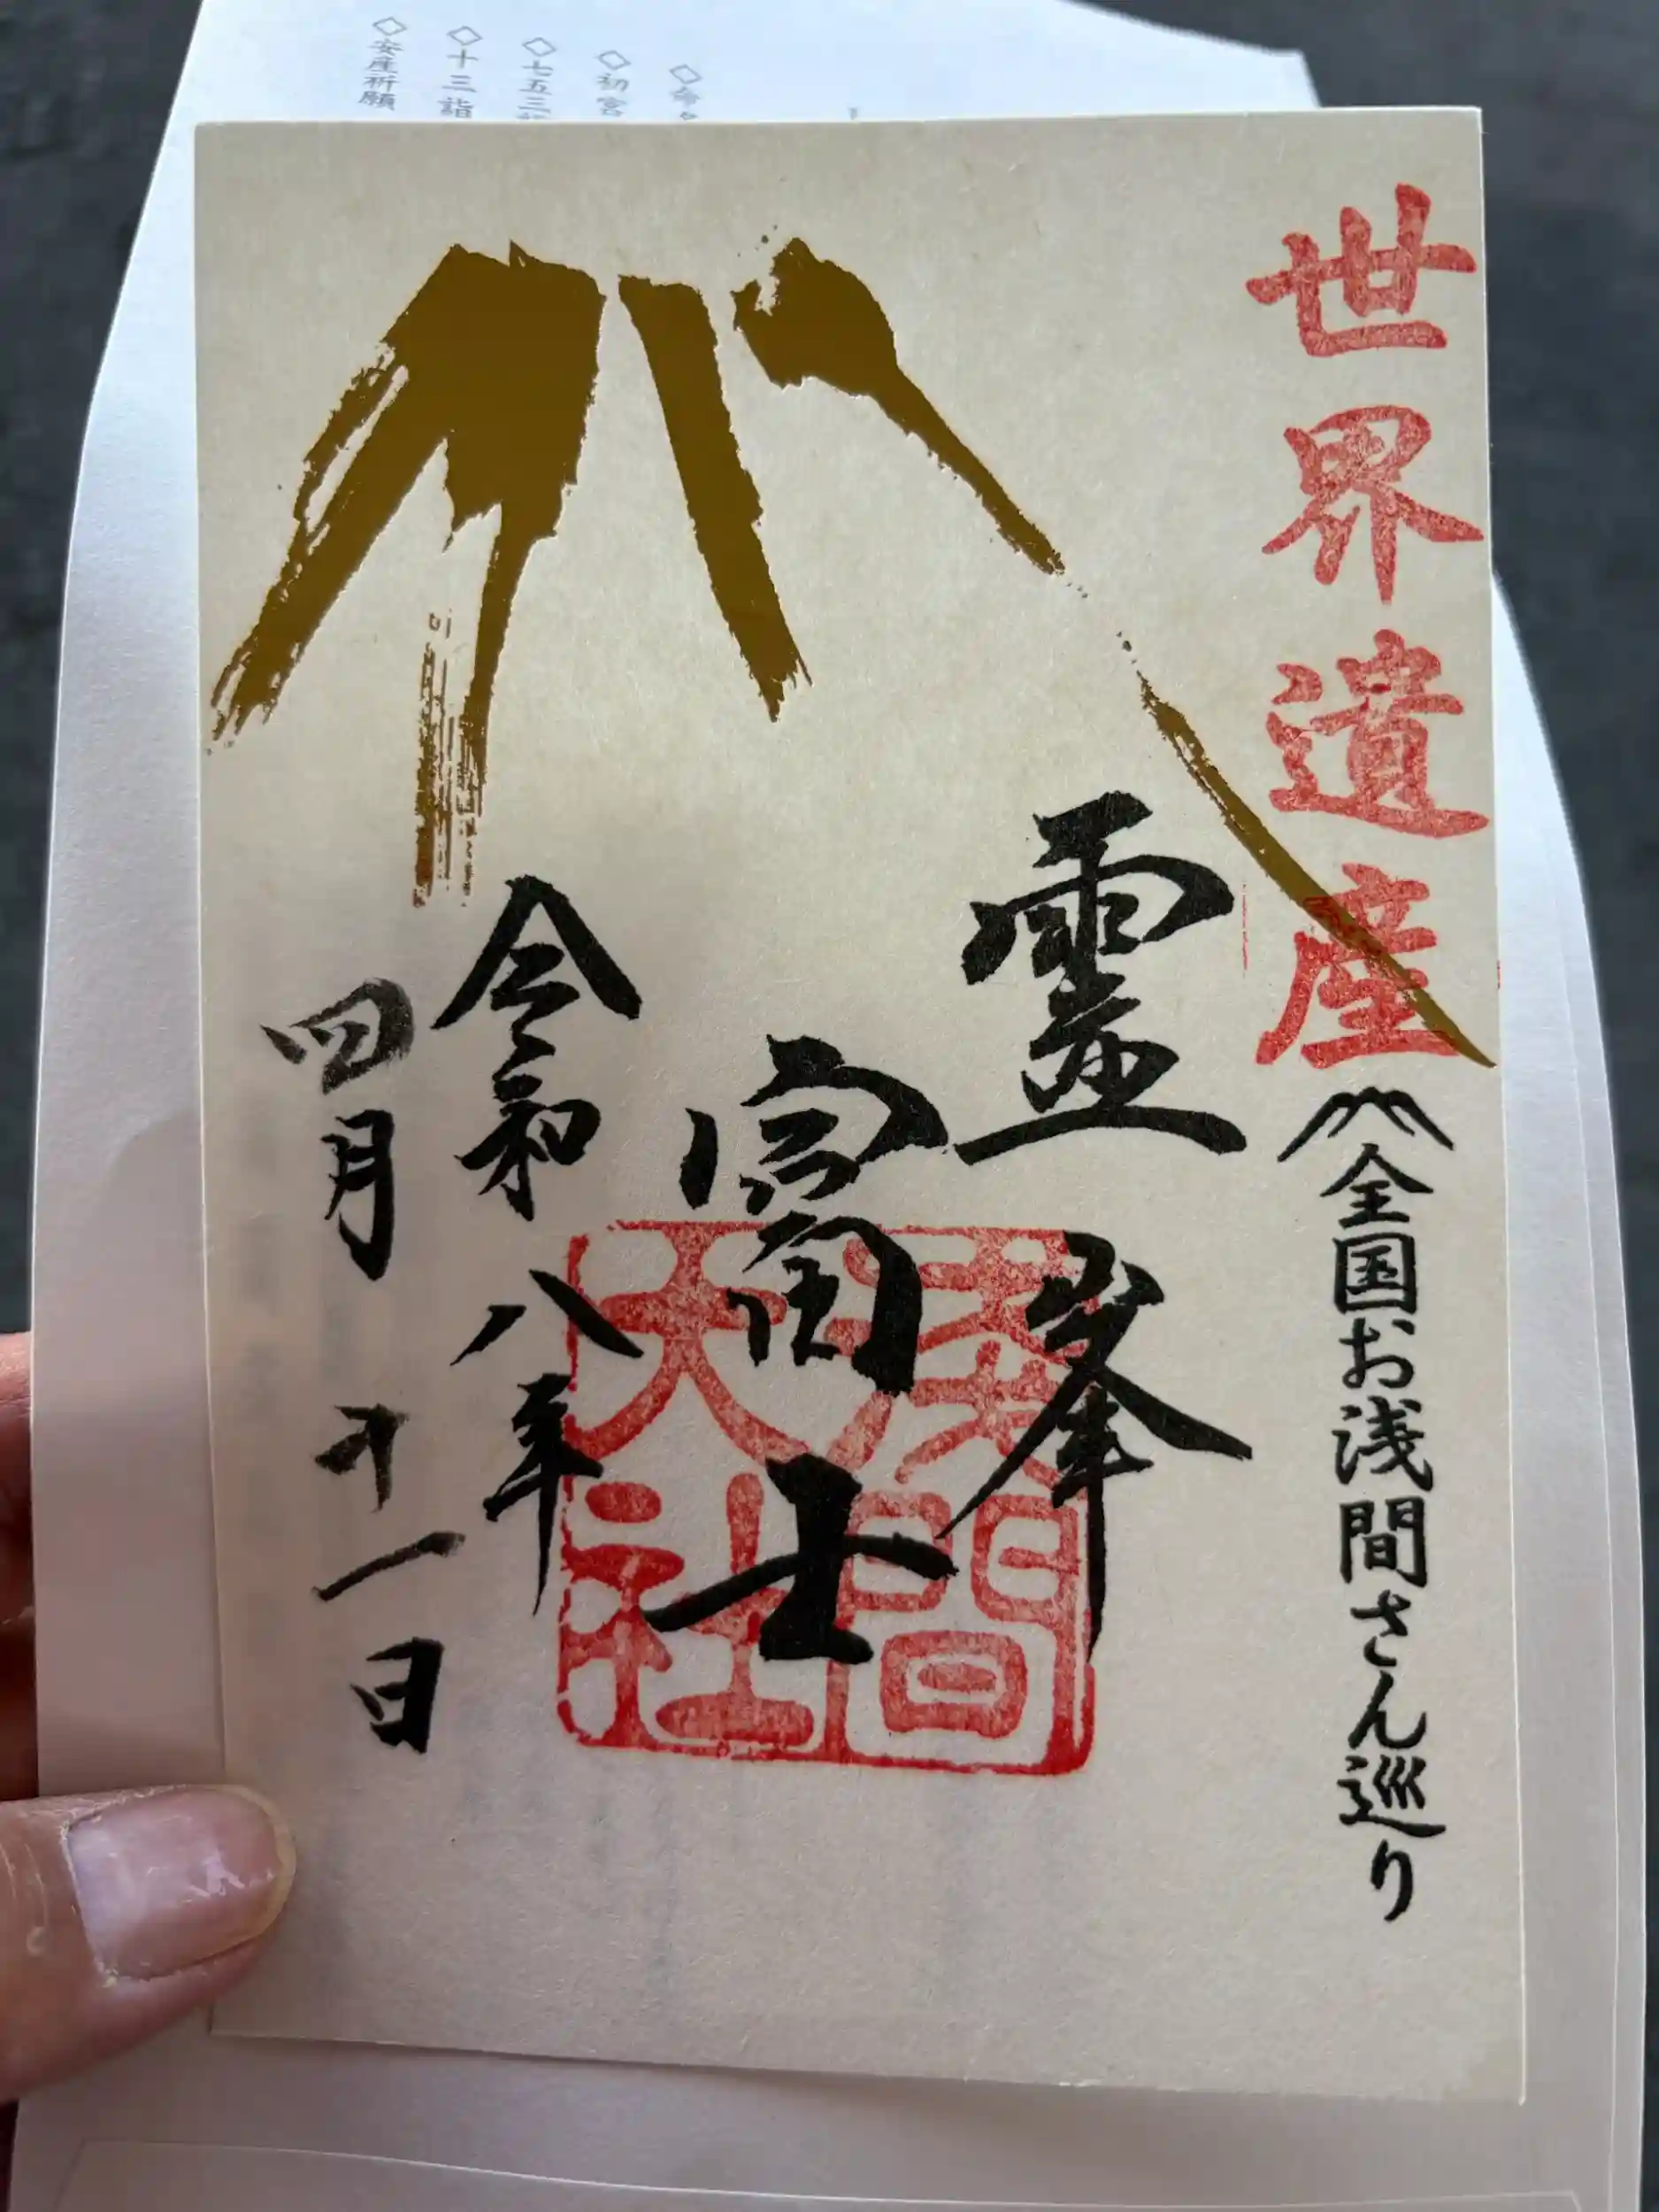 世界遺産
全国お浅間さん巡り
霊峯
富士
浅間
大社
令和八年
四月十一日
◇初宮
◇七五三
◇十三詣
◇安産祈願